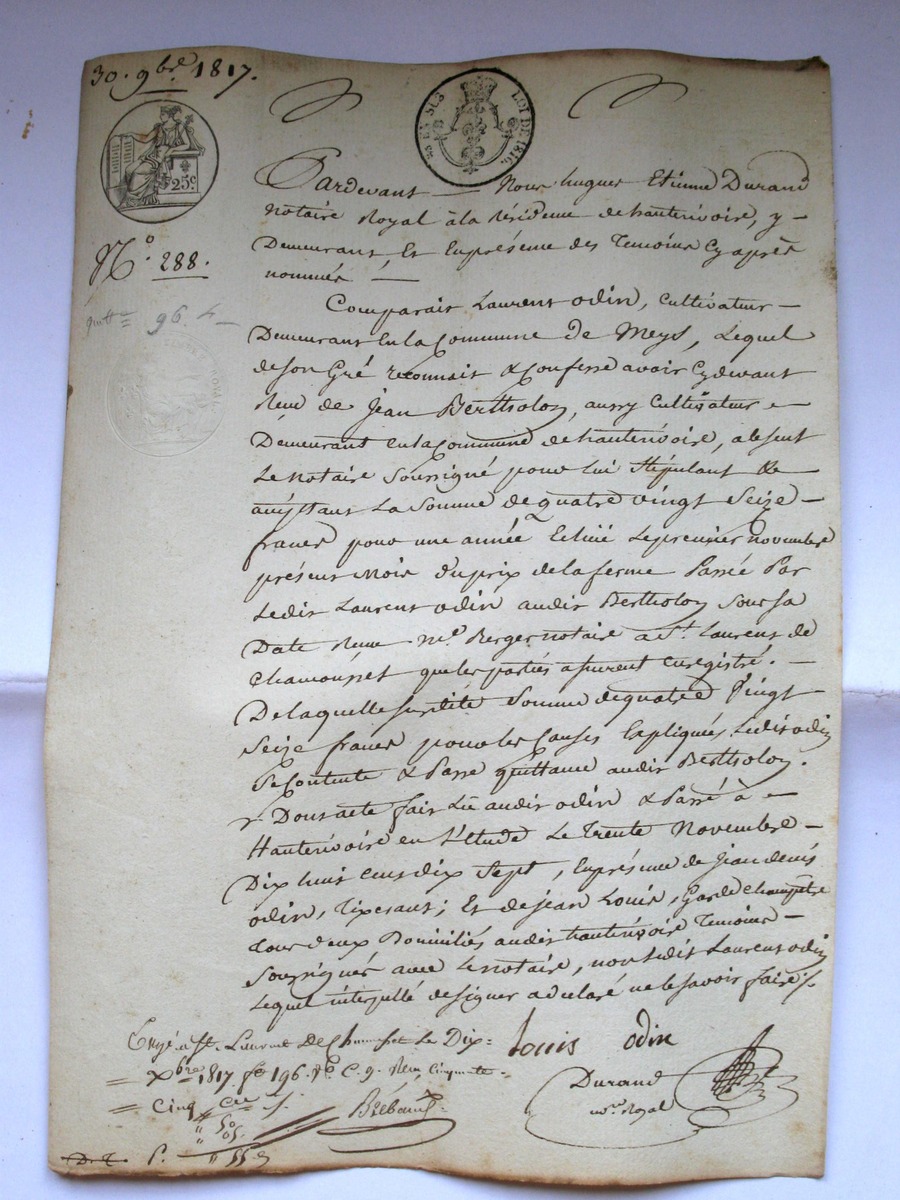 30. 9bre 1817.
25 EN SUS LOI DE 1816.
25c
No. 288.
quitt.ce 96. f
Pardevant — Nous hugues Etienne Durand
notaire Royal à la Résidence de hauterivoire, y –
Demeurant et Enprésence des Temoins Cy après
nommés —
Comparait Laurent odin, Cultivateur –
Demeurant En la Commune de Meys, Lequel
de son Gré reconnait & Confesse avoir Cydevant
Reçu de Jean Bertholon, aussy Cultivateur –
Demeurant en la Commune de hauterivoire, absent
Le notaire Soussigné pour lui Stipulant &
acceptant La Somme de quatre vingt Seize –
francs pour une année Echue Le premier novembre
présent Mois du prix de la ferme Passée Par
Ledit Laurent odin audit Bertholon Sous sa
Date Reçue me. Berger notaire a St. Laurent de
Chamousset que les parties assurent Enregistré. –
De laquelle susdite Somme de quatre Vingt
Seize francs pour les Causes Expliqués Ledit odin
Se Contente & Passe quittance audit Bertholon.
Dont acte fait Lu audit odin & Passé à –
Hauterivoire en l'Etude Le Trente Novembre –
Dix huit cent dix Sept, Enprésence de Jean denis
odin, Tixerant; Et de Jean Louis, Garde Champêtre
Tous deux Domiciliés audit hauterivoire Temoins –
Soussignés avec Le notaire, non Ledit Laurent odin
Lequel interpellé de signer a declaré ne le savoir faire
Louis odin
Enrgé. a St. Laurent De Chamousset Le Dix =
= Xbre 1817 fo 196. Vo C. 9. Reçu Cinquante =
= Cinq
Durand
nre. Royal